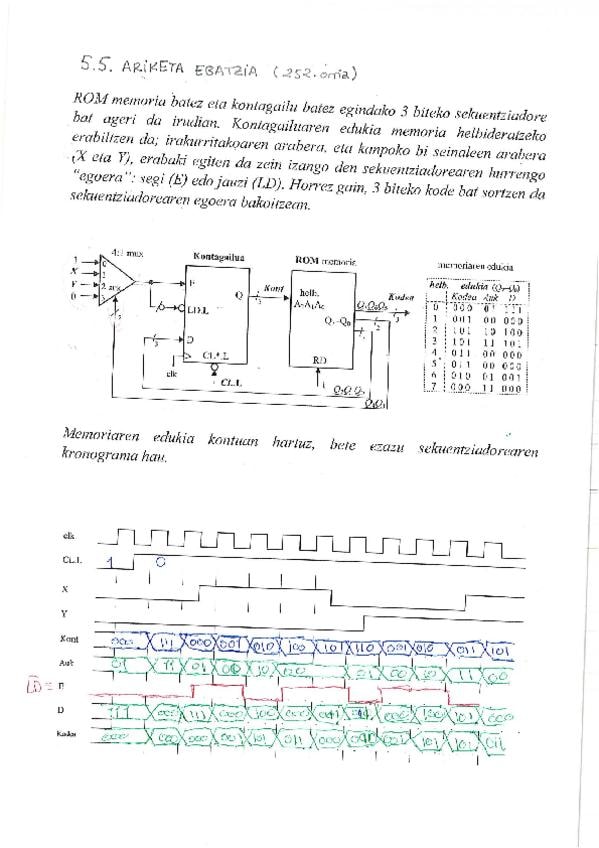 5.5. ARIKETA EBATZIA (252.orria)
ROM memoria batez eta kontagailu batez egindako 3 biteko sekuentziadore
bat ageri da irudian. Kontagailuaren edukia memoria helbideratzeko
erabiltzen da; irakurritakoaren arabera, eta kanpoko bi seinaleen arabera
(X eta Y), erabaki egiten da zein izango den sekuentziadorearen hurrengo
"egoera": segi (E) edo jauzi (LD). Horrez gain, 3 biteko kode bat sortzen da
sekuentziadorearen egoera bakoitzean.
4:1 mux
Kontagailua
ROM memoria
memoriaren edukia
1
X
Y
0
0
1
2
E
LD.L
D
CL.L
Q
Kont
helb.
A2A1A0
RD
Kodea
clk
CL.L
helb. edukia
Kodea Auk D
0 000 01 111
1 001 00 000
2 101 10 100
3 101 11 101
4 011 00 000
5 011 00 000
6 010 01 001
7 000 11 000
Memoriaren edukia kontuan hartuz, bete ezazu sekuentziadorearen
kronograma hau.
clk
CL.L 1 0
X
Y
Kont 000 111 000 001 010 100 101 110 001 010 011 101
Auk 01 11 01 00 10 00 01 00 10 11 00
LD = E
D 111 000 111 000 100 000 001 000 100 101 000
Kodea 000 000 000 001 101 011 000 001 101 101 011